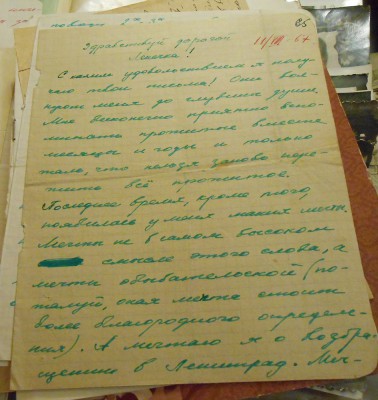 Здравствуй дорогой
Лёнечка!
11/VIII-67
С каким удовольствием я полу-
чаю твои письма! Они вол-
нуют меня до глубины души.
Мне бесконечно приятно вспо-
минать прожитые вместе
месяцы и годы и только
жаль, что нельзя заново пере-
жить всё прожитое.
Последнее время, кроме того,
появилась у меня мечта.
Мечты не в самом высоком
смысле этого слова, а
мечты обывательской (по-
жалуй, оная мечта стоит
более благородного определе-
ния). А мечтаю я о возвра-
щении в Ленинград. Меч-